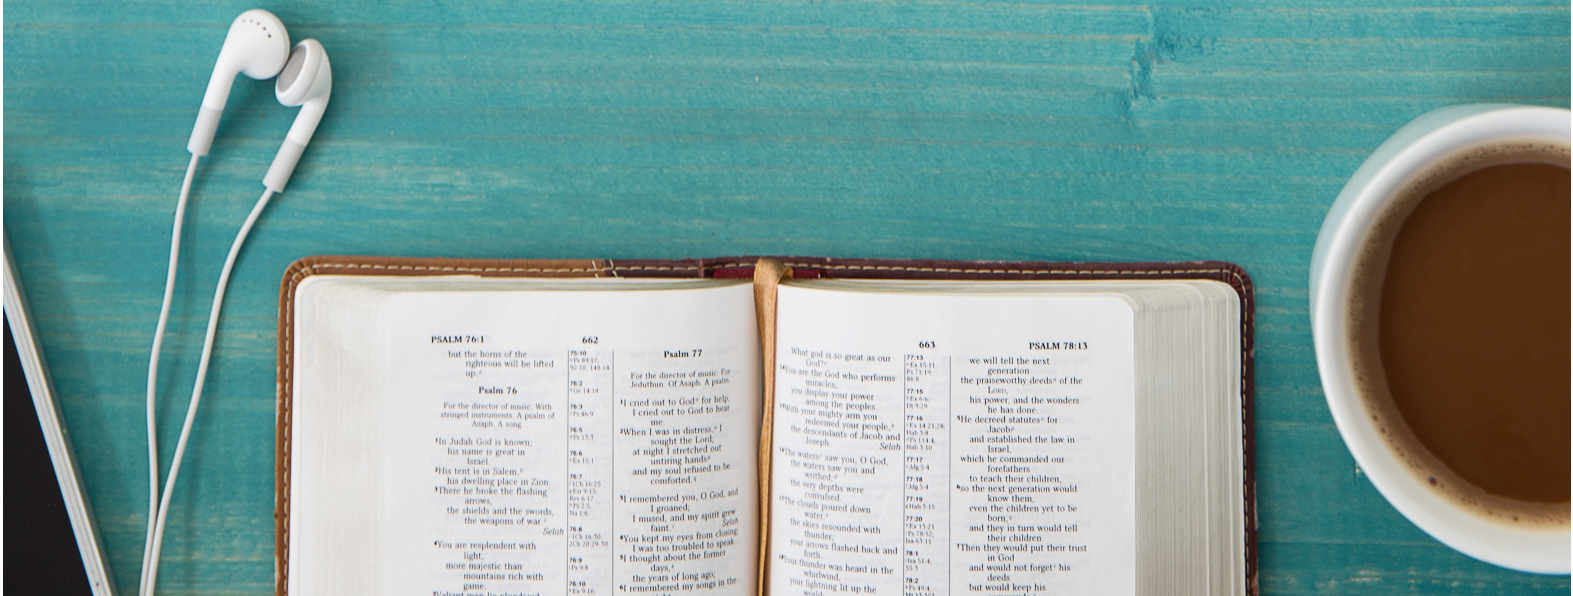 PSALM 76:1
662
but the horns of the
righteous will be lifted
up.
Psalm 76
For the director of music. With
stringed instruments. A psalm of
Asaph. A song.
¹In Judah God is known;
his name is great in
Israel.
²His tent is in Salem,
his dwelling place in Zion.
³There he broke the flashing
arrows,
the shields and the swords,
the weapons of war.
Selah
⁴You are resplendent with
light,
more majestic than
mountains rich with
game.
75:10
76:2
Ge 14:18
76:3
Ps 46:9
76:5
76:6
Ex 15:1
76:7
76:8
76:9
Ps 9:8
76:10
Ex 9:16
Psalm 77
For the director of music. For
Jeduthun. Of Asaph. A psalm.
¹I cried out to God for help;
I cried out to God to hear
me.
²When I was in distress, I
sought the Lord;
at night I stretched out
untiring hands
and my soul refused to be
comforted.
³I remembered you, O God, and
I groaned;
I mused, and my spirit grew
faint.
Selah
⁴You kept my eyes from closing;
I was too troubled to speak.
⁵I thought about the former
days,
the years of long ago;
⁶I remembered my songs in the
663
PSALM 78:13
What god is so great as our
God?
¹⁴You are the God who performs
miracles;
you display your power
among the peoples.
¹⁵With your mighty arm you
redeemed your people,
the descendants of Jacob and
Joseph.
Selah
¹⁶The waters saw you, O God,
the waters saw you and
writhed;
the very depths were
convulsed.
¹⁷The clouds poured down
water,
the skies resounded with
thunder;
your arrows flashed back and
forth.
¹⁸Your thunder was heard in the
whirlwind,
your lightning lit up the
world;
77:13
Ex 15:11;
Ps 71:19;
86:8
77:15
Ex 6:6;
Dt 9:29
77:16
Ex 14:21,28;
Hab 3:8
Hab 3:10
77:17
Jdg 5:4
77:18
77:19
Hab 3:15
77:20
Ex 13:21
Ps 78:52;
Isa 63:11
78:1
Isa 51:4;
55:3
78:2
Ps 49:4
we will tell the next
generation
the praiseworthy deeds of the
LORD,
his power, and the wonders
he has done.
⁵He decreed statutes for
Jacob
and established the law in
Israel,
which he commanded our
forefathers
to teach their children,
⁶so the next generation would
know them,
even the children yet to be
born,
and they in turn would tell
their children.
⁷Then they would put their trust
in God
and would not forget his
deeds
but would keep his